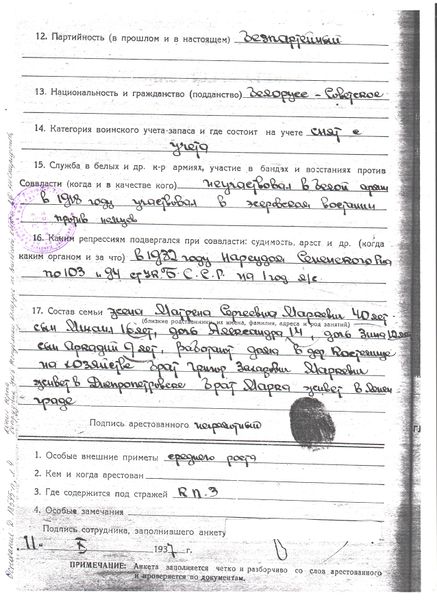 12. Партийность (в прошлом и в настоящем) Безпартейный
13. Национальность и гражданство (подданство) Белорусс - Советское
14. Категория воинского учета-запаса и где состоит на учете снят с
учета
15. Служба в белых и др. к-р армиях, участие в бандах и восстаниях против
Совласти (когда и в качестве кого) неучаствовал в белой армии
в 1918 году участвовал в восстании
против немцев
16. Каким репрессиям подвергался при совласти: судимость, арест и др. (когда
каким органом и за что) в 1932 году Нарсудом Сененского Р-на
по 103 и 94 ст УК Б.С.С.Р. на 1 год л/с
17. Состав семьи жена Матрена Сергеевна Маркович 40 лет
(близкие родственники, их имена, фамилия, адреса и род занятий)
сын Михаил 16 лет, дочь Александра 14, дочь Зина
сын Аркадий 9 лет, работают дома в дер
на хозяйстве Брат Захарович Маркович
живет в Днепропетровске Брат Марка живет в Ленин
граде
Подпись арестованного неграмотный
1. Особые внешние приметы среднего роста
2. Кем и когда арестован
3. Где содержится под стражей КП.З
4. Особые замечания
Подпись сотрудника, заполнившего анкету
11. 1937 г.
ПРИМЕЧАНИЕ: Анкета заполняется четко и разборчиво со слов арестованного
и проверяется по документам.